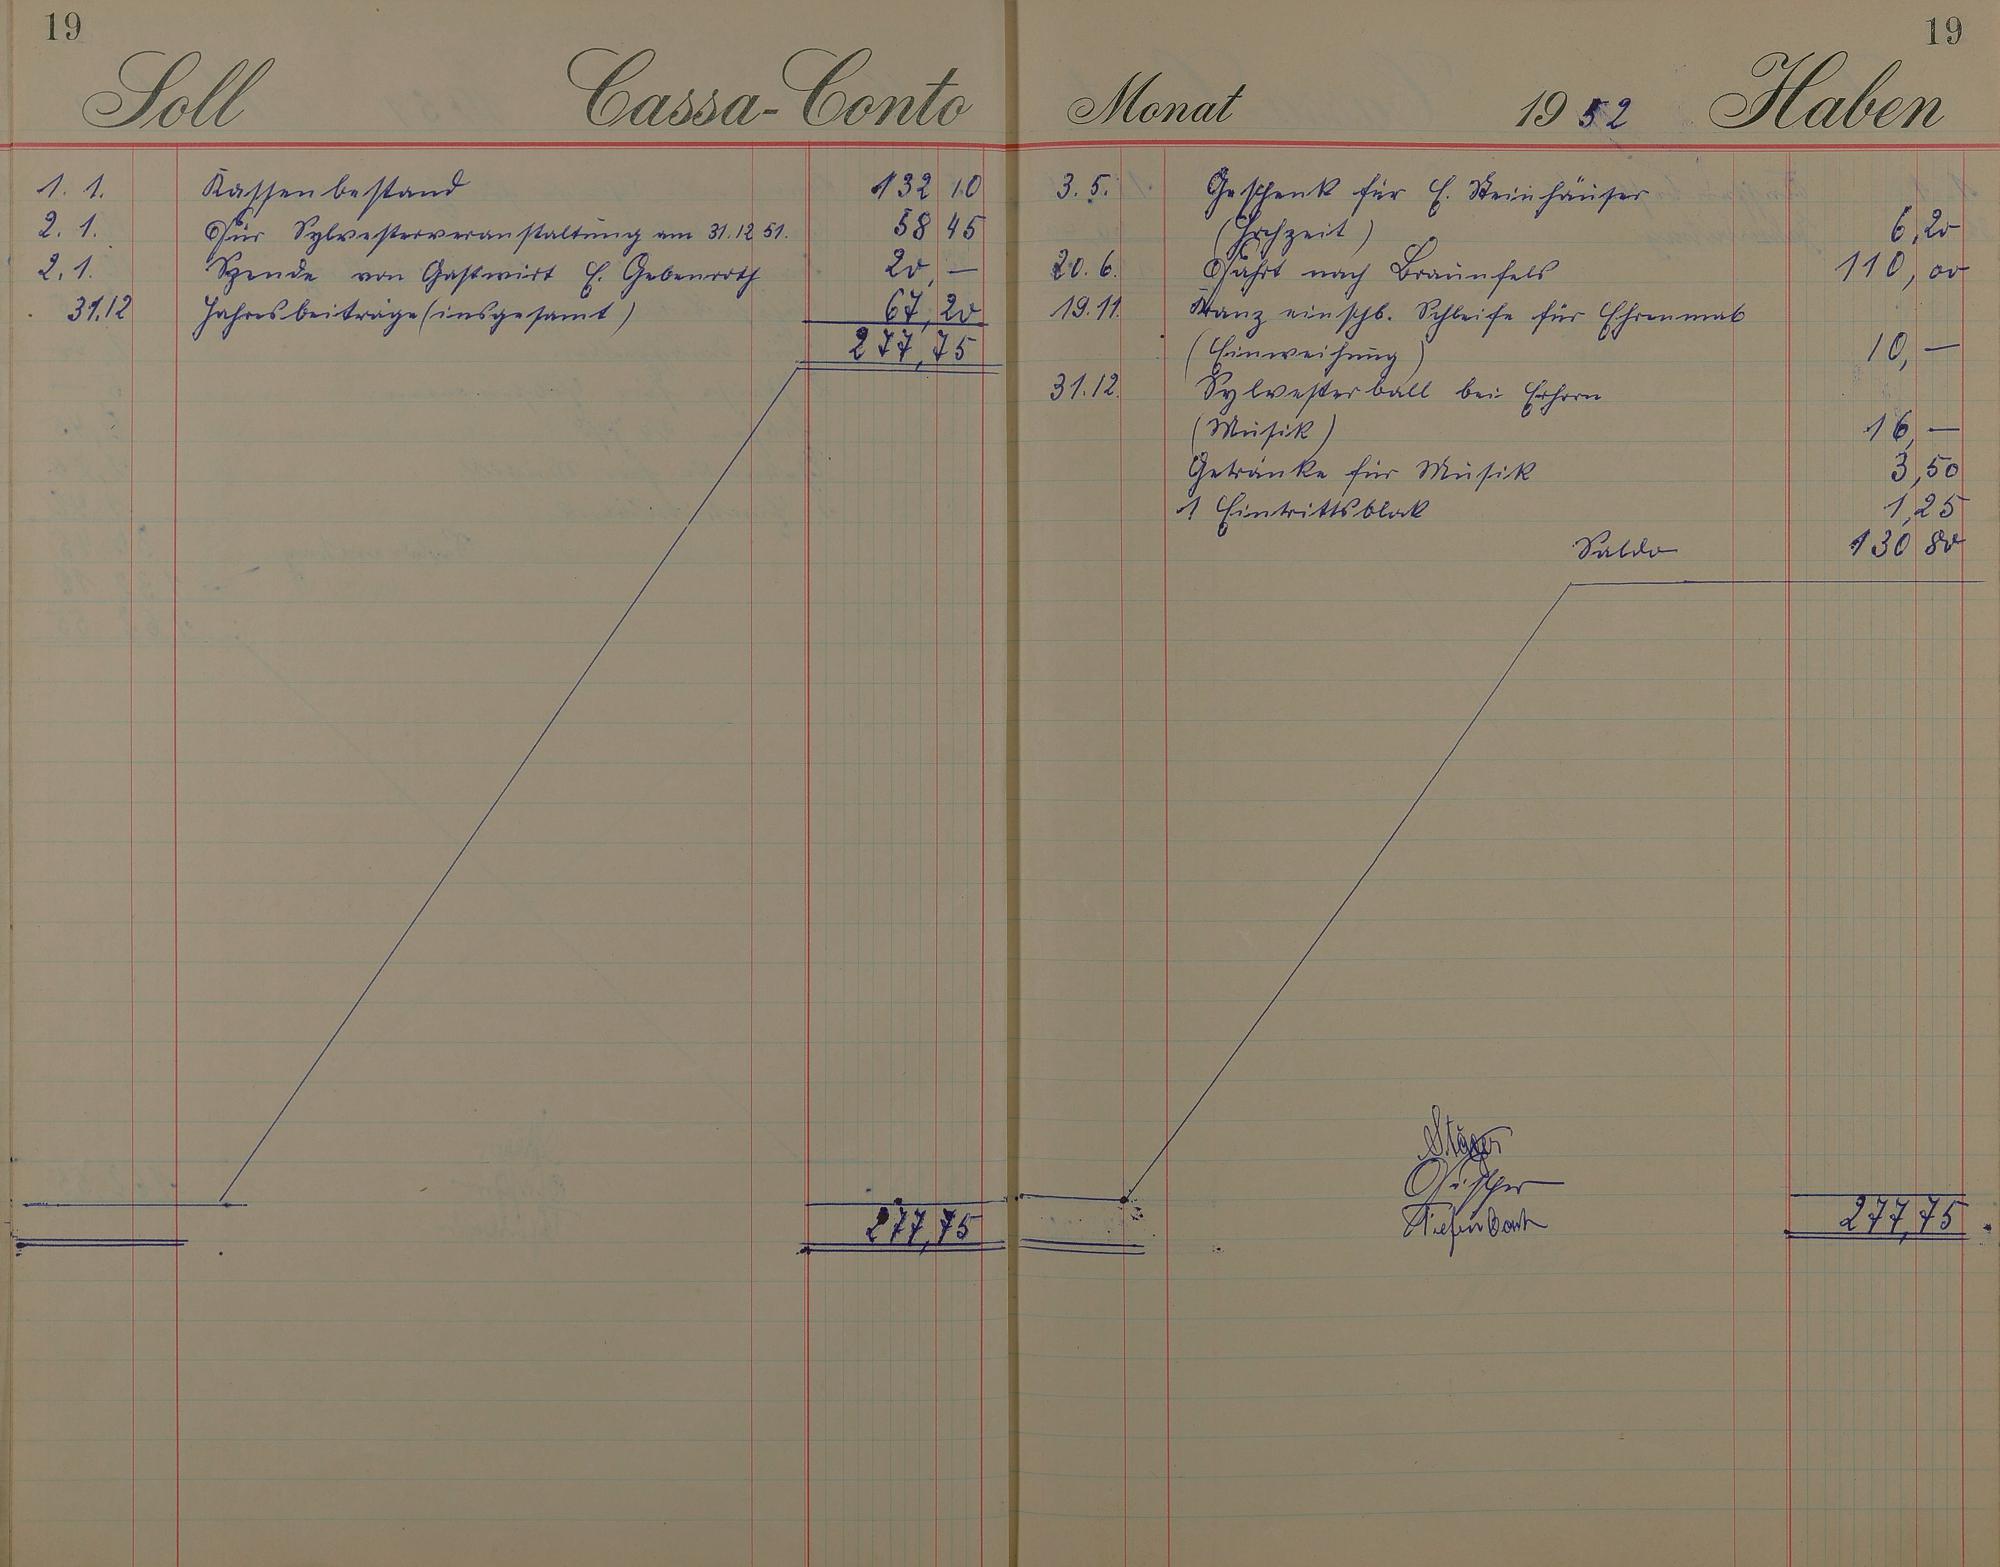 19
Soll Cassa-Conto
1. 1. Kassenbestand 132 10
2. 1. Für Sylvesterveranstaltung am 31.12 51. 58 45
2. 1. Spende von Gastwirt E. Gebenroth 20,—
31.12 Jahresbeiträge (insgesamt) 67,20
277,75
277,75
19
Monat 1952 Haben
3. 5. Geschenk für E. Steinhäuser
(Hochzeit) 6,20
20. 6. Fahrt nach Braunfels 110,00
19.11. Kranz einschl. Schleife für Ehrenmal
(Einweihung) 10,—
31.12. Sylvesterball bei Erhorn
(Musik) 16,—
Getränke für Musik 3,50
1 Eintrittsblok 1,25
Saldo 130 80
Fischer
Tiefenbach
277,75